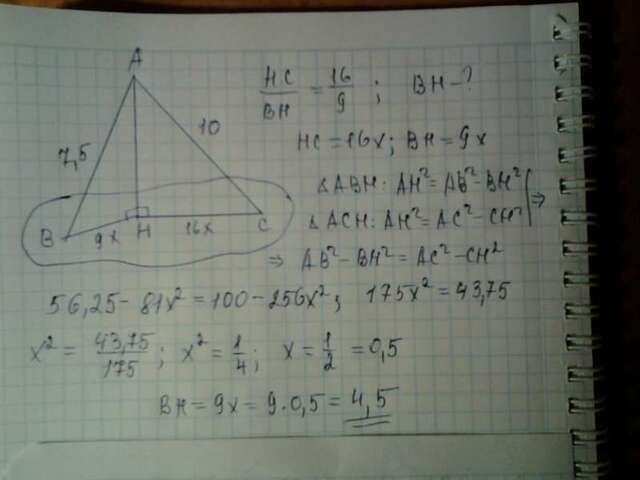 A
HC/BH = 16/9 ; BH-?
7,5
10
HC = 16x; BH = 9x
△ABH: AH² = AB² - BH²
△ACH: AH² = AC² - CH² | ⇒
B 9x H 16x C
⇒ AB² - BH² = AC² - CH²
56,25 - 81x² = 100 - 256x²; 175x² = 43,75
x² = 43,75/175 ; x² = 1/4 ; x = 1/2 = 0,5
BH = 9x = 9·0,5 = 4,5